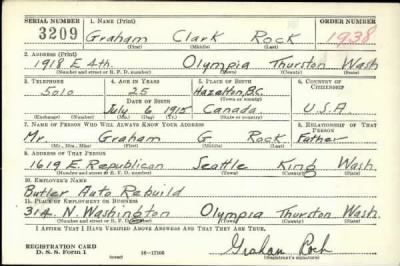 SERIAL NUMBER 1. NAME (Print) ORDER NUMBER
3209 Graham Clark Rock 1938
(First) (Middle) (Last)
2. ADDRESS (Print)
1918 E. 4th. Olympia Thurston Wash
(Number and street or R. F. D. number) (Town) (County) (State)
3. TELEPHONE 4. AGE IN YEARS 5. PLACE OF BIRTH 6. COUNTRY OF CITIZENSHIP
5010 25 Hazelton, B.C.
DATE OF BIRTH (Town or county)
July 6 1915 Canada U.S.A.
(Exchange) (Number) (Mo.) (Day) (Yr.) (State or country)
7. NAME OF PERSON WHO WILL ALWAYS KNOW YOUR ADDRESS 8. RELATIONSHIP OF THAT PERSON
Mr. Graham G Rock Father
(Mr., Mrs., Miss) (First) (Middle) (Last)
9. ADDRESS OF THAT PERSON
1619 E. Republican Seattle King Wash.
(Number and street or R. F. D. number) (Town) (County) (State)
10. EMPLOYER'S NAME
Butler Auto Rebuild
11. PLACE OF EMPLOYMENT OR BUSINESS
314 N. Washington Olympia Thurston Wash.
(Number and street or R. F. D. number) (Town) (County) (State)
I AFFIRM THAT I HAVE VERIFIED ABOVE ANSWERS AND THAT THEY ARE TRUE.
REGISTRATION CARD
D. S. S. Form 1 (over) 16-17105 Graham Rock